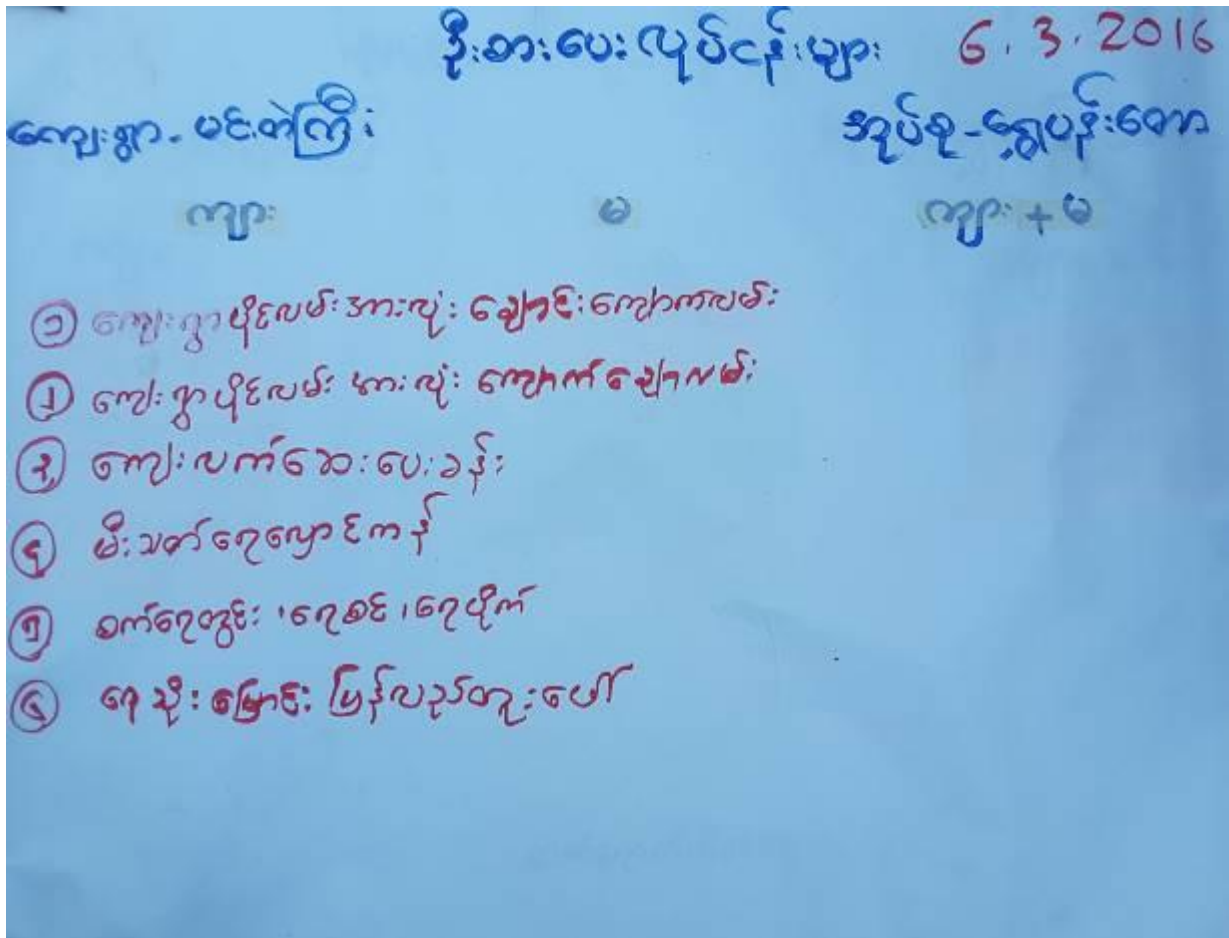 ဦးစားပေးလုပ်ငန်းများ 6.3.2016
ကျေးရွာ-မင်းတဲကြီး အုပ်စု-ရွှေပန်းတော
ကျား မ ကျား+မ
၁ ကျေးရွာပိုင်လမ်းအားလုံး ချောင်းကျောကလမ်း
၂ ကျေးရွာပိုင်လမ်း အားလုံး ကျောက်ချောလမ်း
၃ ကျေးလက်ဆေးပေးခန်း
၄ မီးသတ်ရေလှောင်ကန်
၅ စက်ရေတွင်း၊ ရေစင်၊ ရေပိုက်
၆ ရေသိုးမြောင်း ပြန်လည်တူးဖေါ်